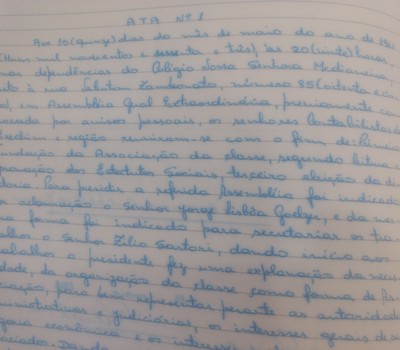 ATA Nº 1
Aos 15 (quinze) dias do mês de maio do ano de 196
(Hum mil novecento e sessenta e três), às 20 (vinte) horas,
nas dependências do Colégio Nossa Senhora Medianeira,
sito à rua Zambonato, número 85 (oitenta e cin
co), em Assembléia Geral Extraordinária, previamente con
vocada por avisos pessoais, os senhores Contabilistas
Erechim e região reuniram-se com o fim de: Primeiro
fundação da Associação da classe, segundo leitura
provação dos Estatutos Sociais, terceiro eleição da di
toria. Para presidir a referida Assembléia foi indicado
por aclamação o senhor Jorge Lisbôa, e da mes
ma forma foi indicado para secretariar os tra
balhos o senhor Zilio Sartori, dando início aos
trabalhos o presidente fez uma explanação da neces
dade, da organização da classe como forma de As
ciação, para bem representar perante as autoridade
ministrativas e judiciárias, os interesses gerais de s
goria econômica e os interesses
sociados.